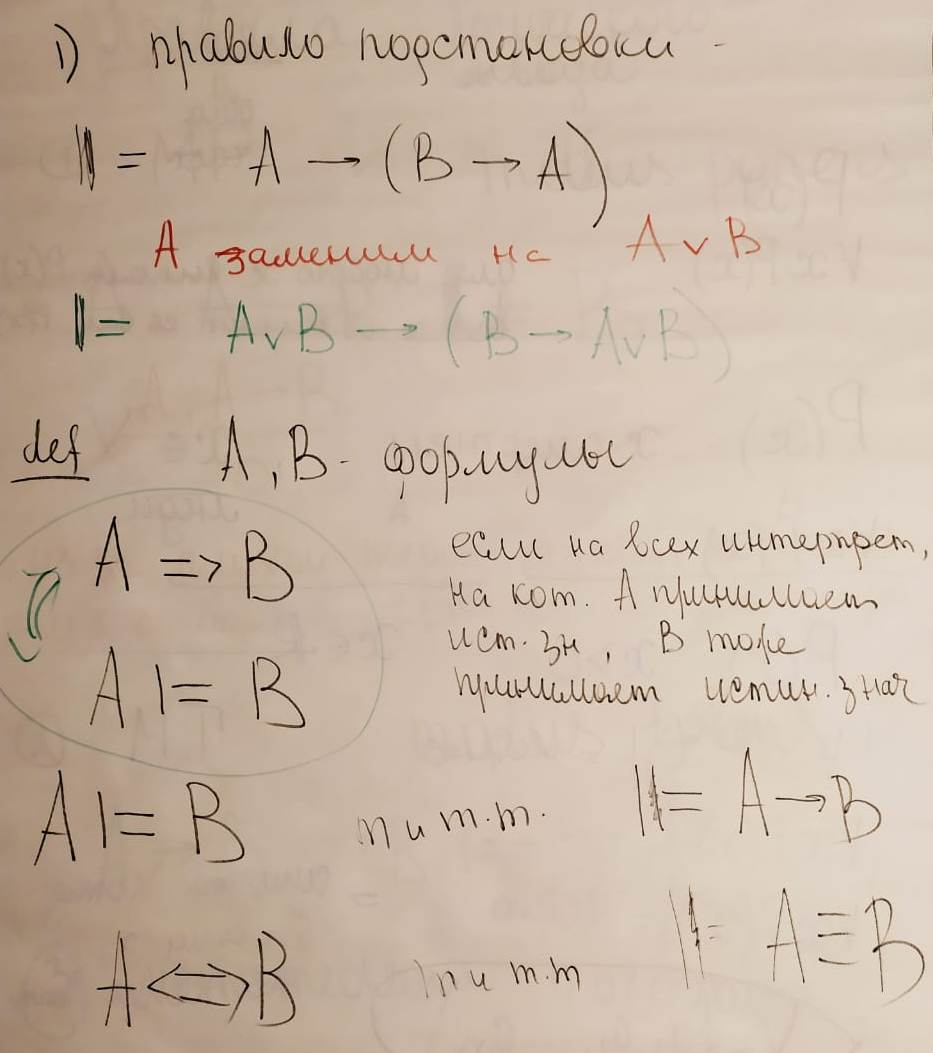 1) правило подстановки -
||= A → (B → A)
A заменим на A ∨ B
||= A ∨ B → (B → A ∨ B)
def A, B - формулы
A => B
A |= B
если на всех интерпрет,
на кот. A принимает
ист. зн, B тоже
принимает истин. знач
A |= B т и т.т. ||= A → B
A <=> B т и т.т ||= A ≡ B